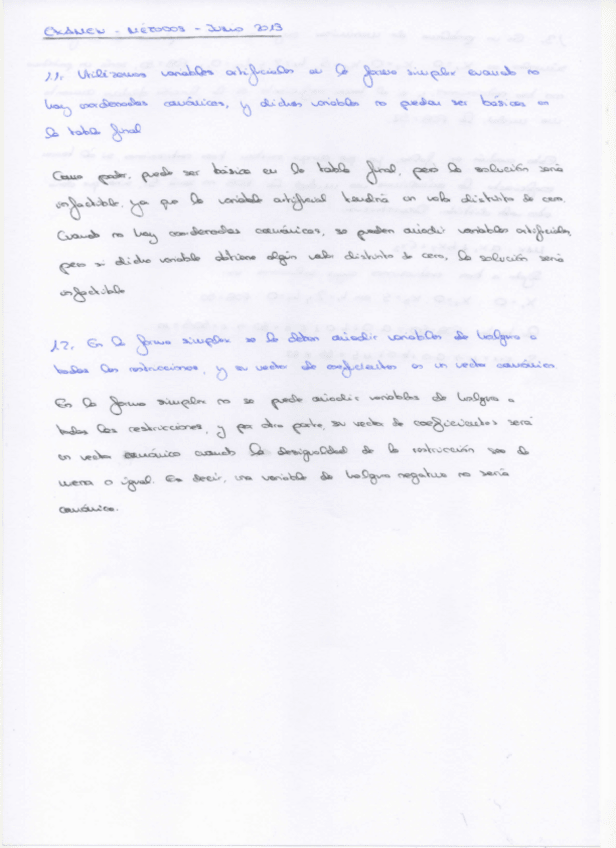 EXAMEN - MÉTODOS - JUNIO 2013
1.1. Utilizamos variables artificiales en la forma simplex cuando no
hay coordenadas canónicas, y dichas variables no pueden ser básicas en
la tabla final
Como poder, puede ser básica en la tabla final, pero la solución sería
infactible, ya que la variable artificial tendría un valor distinto de cero.
Cuando no hay coordenadas canónicas, se pueden añadir variables artificiales,
pero si dicha variable obtiene algún valor distinto de cero, la solución sería
infactible
1.2. En la forma simplex se le deben añadir variables de holgura a
todas las restricciones, y su vector de coeficientes es un vector canónico
En la forma simplex no se puede añadir variables de holgura a
todas las restricciones, y por otra parte, su vector de coeficientes será
un vector canónico cuando la desigualdad de la restricción sea de
menor o igual. Es decir, una variable de holgura negativa no sería
canónica.